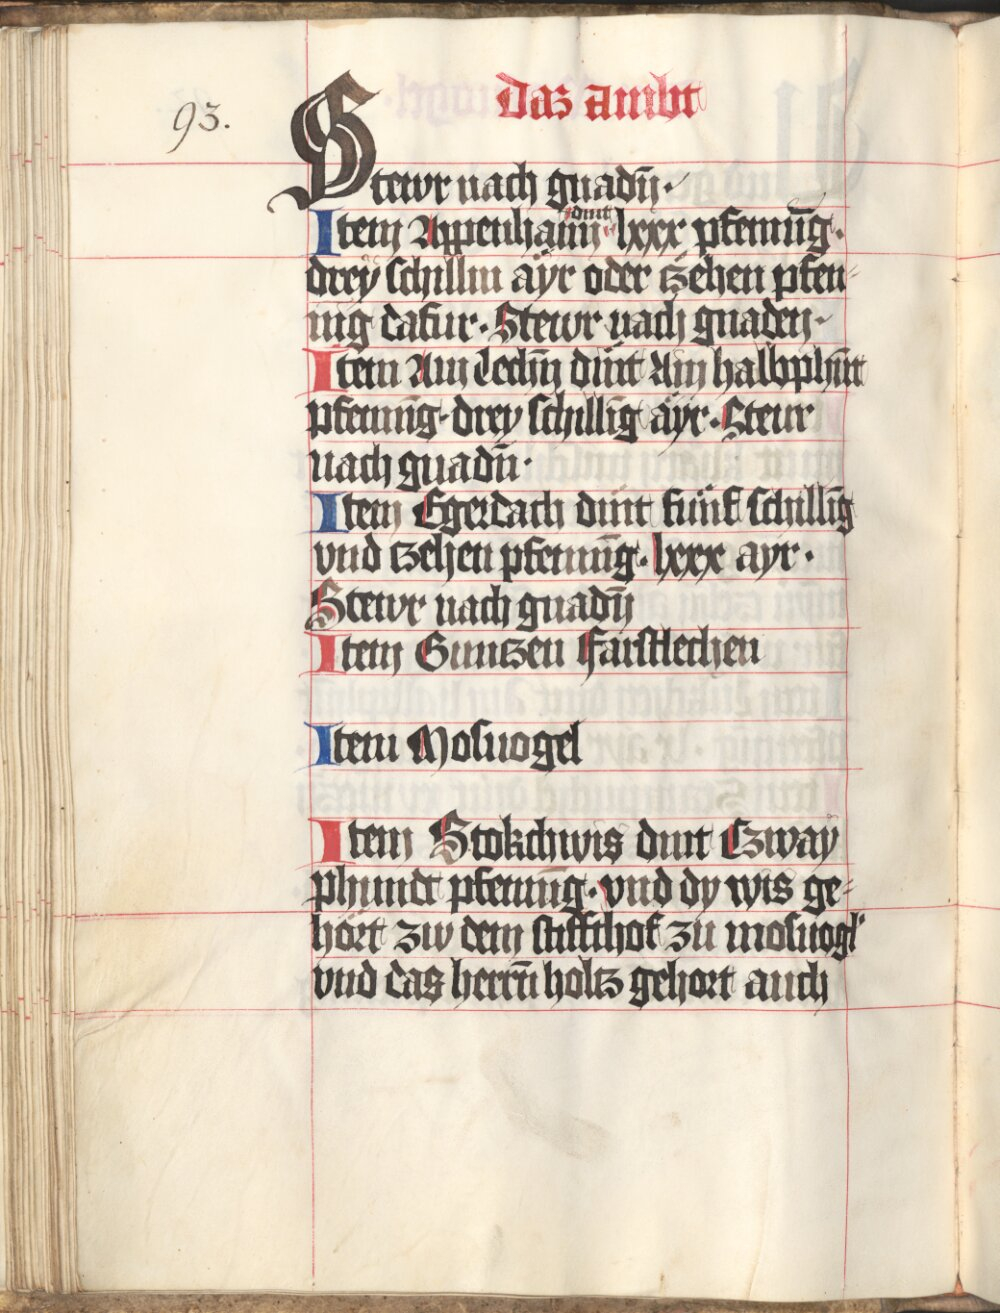 93.
Das ambt
Stewr nach gnadn̄·
Item Appenhaim̄ dint lxxx pfennīg·
drey schillin aÿr oder tzehen pfen-
nig dafur· Stewr nach gnaden·
Item Ain Lechn̄ dint Ain halbphūt
pfennīg· drey schillīg aÿr· Steur
nach gnadn̄·
Item Egerdach dint fünf schillīg
vnd tzehen pfennīg· lxxx ayr·
Stewr nach gnadn̄
Item Guntzen
Item Mosuogel
Item Stokchwis dint Czway
phundt pfennīg· vnd dy wis ge-
hört zw dem stiffthof zu mosuogl
vnd das herrn̄ holtz gehort auch